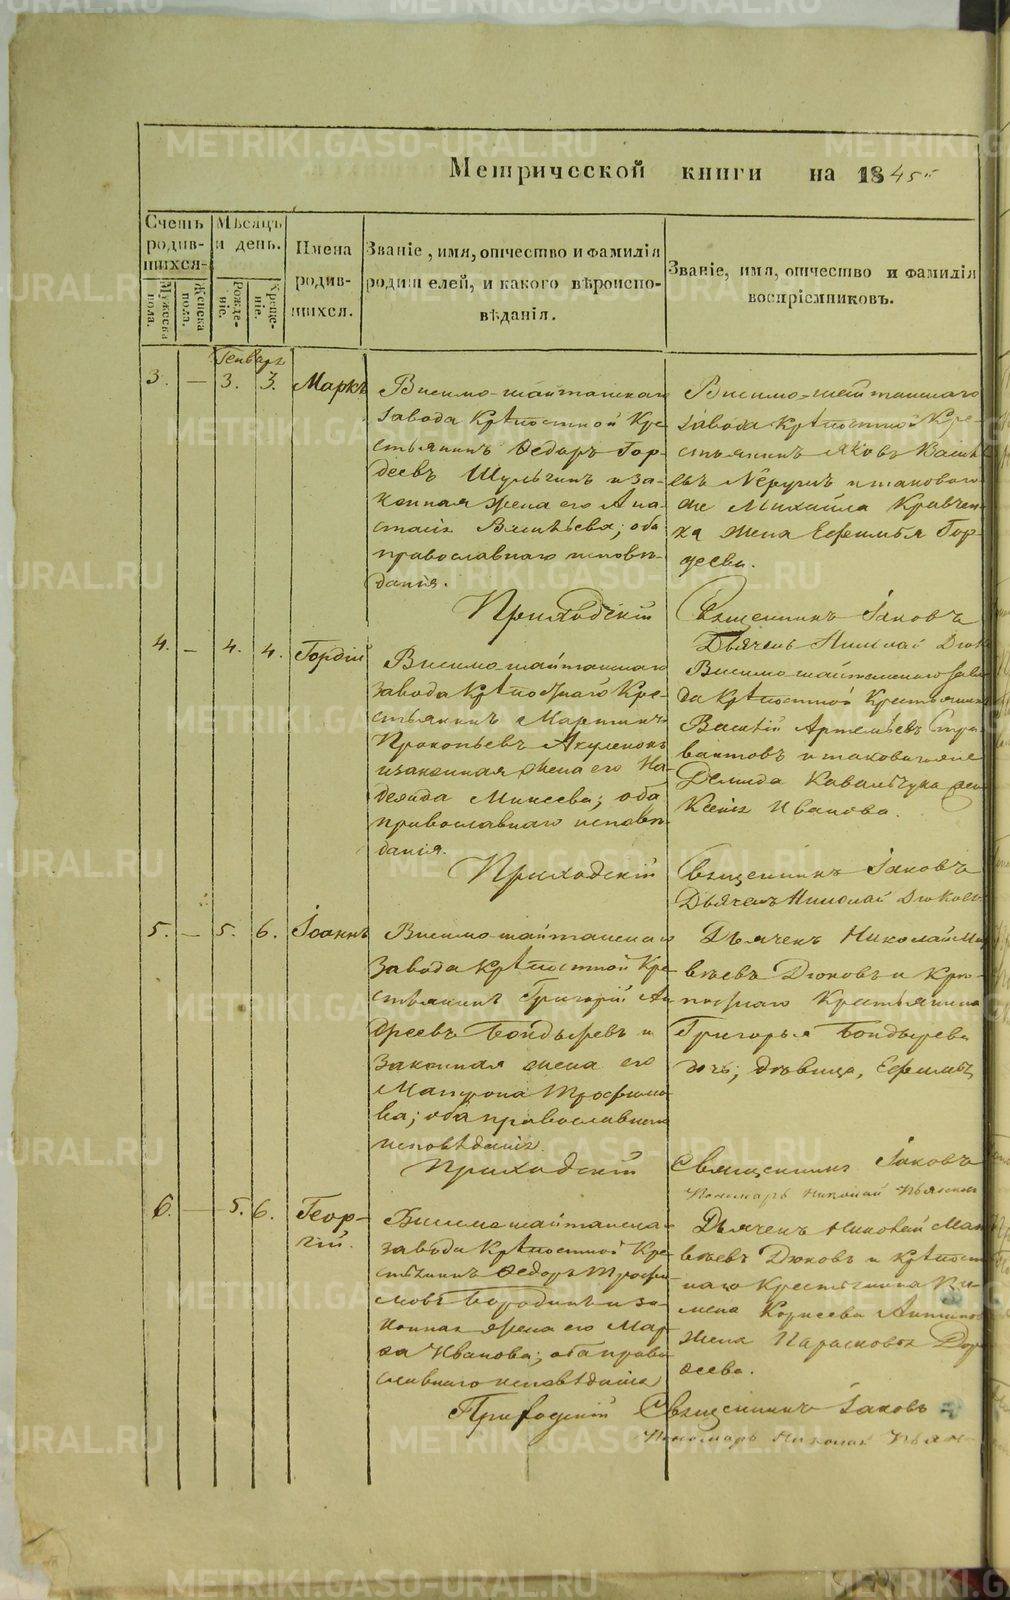 METRIKI.GASO-URAL.RU
Метрической книги на 1845й
Счетъ родив-шихся.
Мужеска пола.
Женска пола.
Мѣсяцъ и день.
Рожде-ніе.
Креще-ніе.
Имена
родив-
шихся.
Званіе, имя, отчество и фамилія
родителей, и какого вѣроиспо-
вѣданія.
Званіе, имя, отчество и фамилія
воспріемниковъ.
Генварь
3. — 3. 3. Маркъ
Висимо-шайтанскаго
завода Крѣпостной Кре-
стьянинъ Ѳедоръ Гор-
деевъ Шульгинъ и за-
конная жена его Ана-
стасія; оба
православнаго исповѣ-
данія.
Висимо-шайтанскаго
завода Крѣпостной Кре-
стьянинъ Яковъ
и таковаго
же Михайла
жена Ефимья Гор-
деева.
Приходскій Священникъ Іаковъ
Дьячекъ Николай
4. — 4. 4. Гордій
Висимо шайтанскаго
завода Крѣпостнаго Кре-
стьянинъ Мартинъ
Прокопьевъ Акуленокъ
и законная жена его На-
дежда Михеева; оба
православнаго исповѣ-
данія.
Висимо шайтанскаго заво
да Крѣпостной Крестьянинъ
Василій Артемьевъ
и таковаго же
Демида Ковальчука
Ксенія Иванова.
Приходскій Священникъ Іаковъ
Дьячекъ Николай Дюковъ
5. — 5. 6. Іоаннъ
Висимо-шайтанскаго
Завода Крѣпостной Кре-
стьянинъ Григорій Ан
дреевъ Бондыревъ и
Законная жена его
Матрона Трофимо-
ва; оба православнаго
исповѣданія.
Дьячекъ Николай Мат
вѣевъ Дюковъ и Крѣ-
постнаго Крестьянина
Григорья Бондырева
дочь, дѣвица, Ефимья
Приходскій Священникъ Іаковъ
Пономарь Николай
6. — 5. 6. Геор-
гій.
Висимо шайтанска
завода Крѣпостной Кре
стьянинъ Ѳедоръ Трофи
мовъ Бородинъ и за-
конная жена его Мар
ѳа Иванова; оба право
славнаго исповѣданія
Дьячекъ Николай Мат
вѣевъ Дюковъ и крѣпост
наго Крестьянина
жена Парасковья Дор
ѳеева.
Приходскій Священникъ Іаковъ
Пономарь Николай